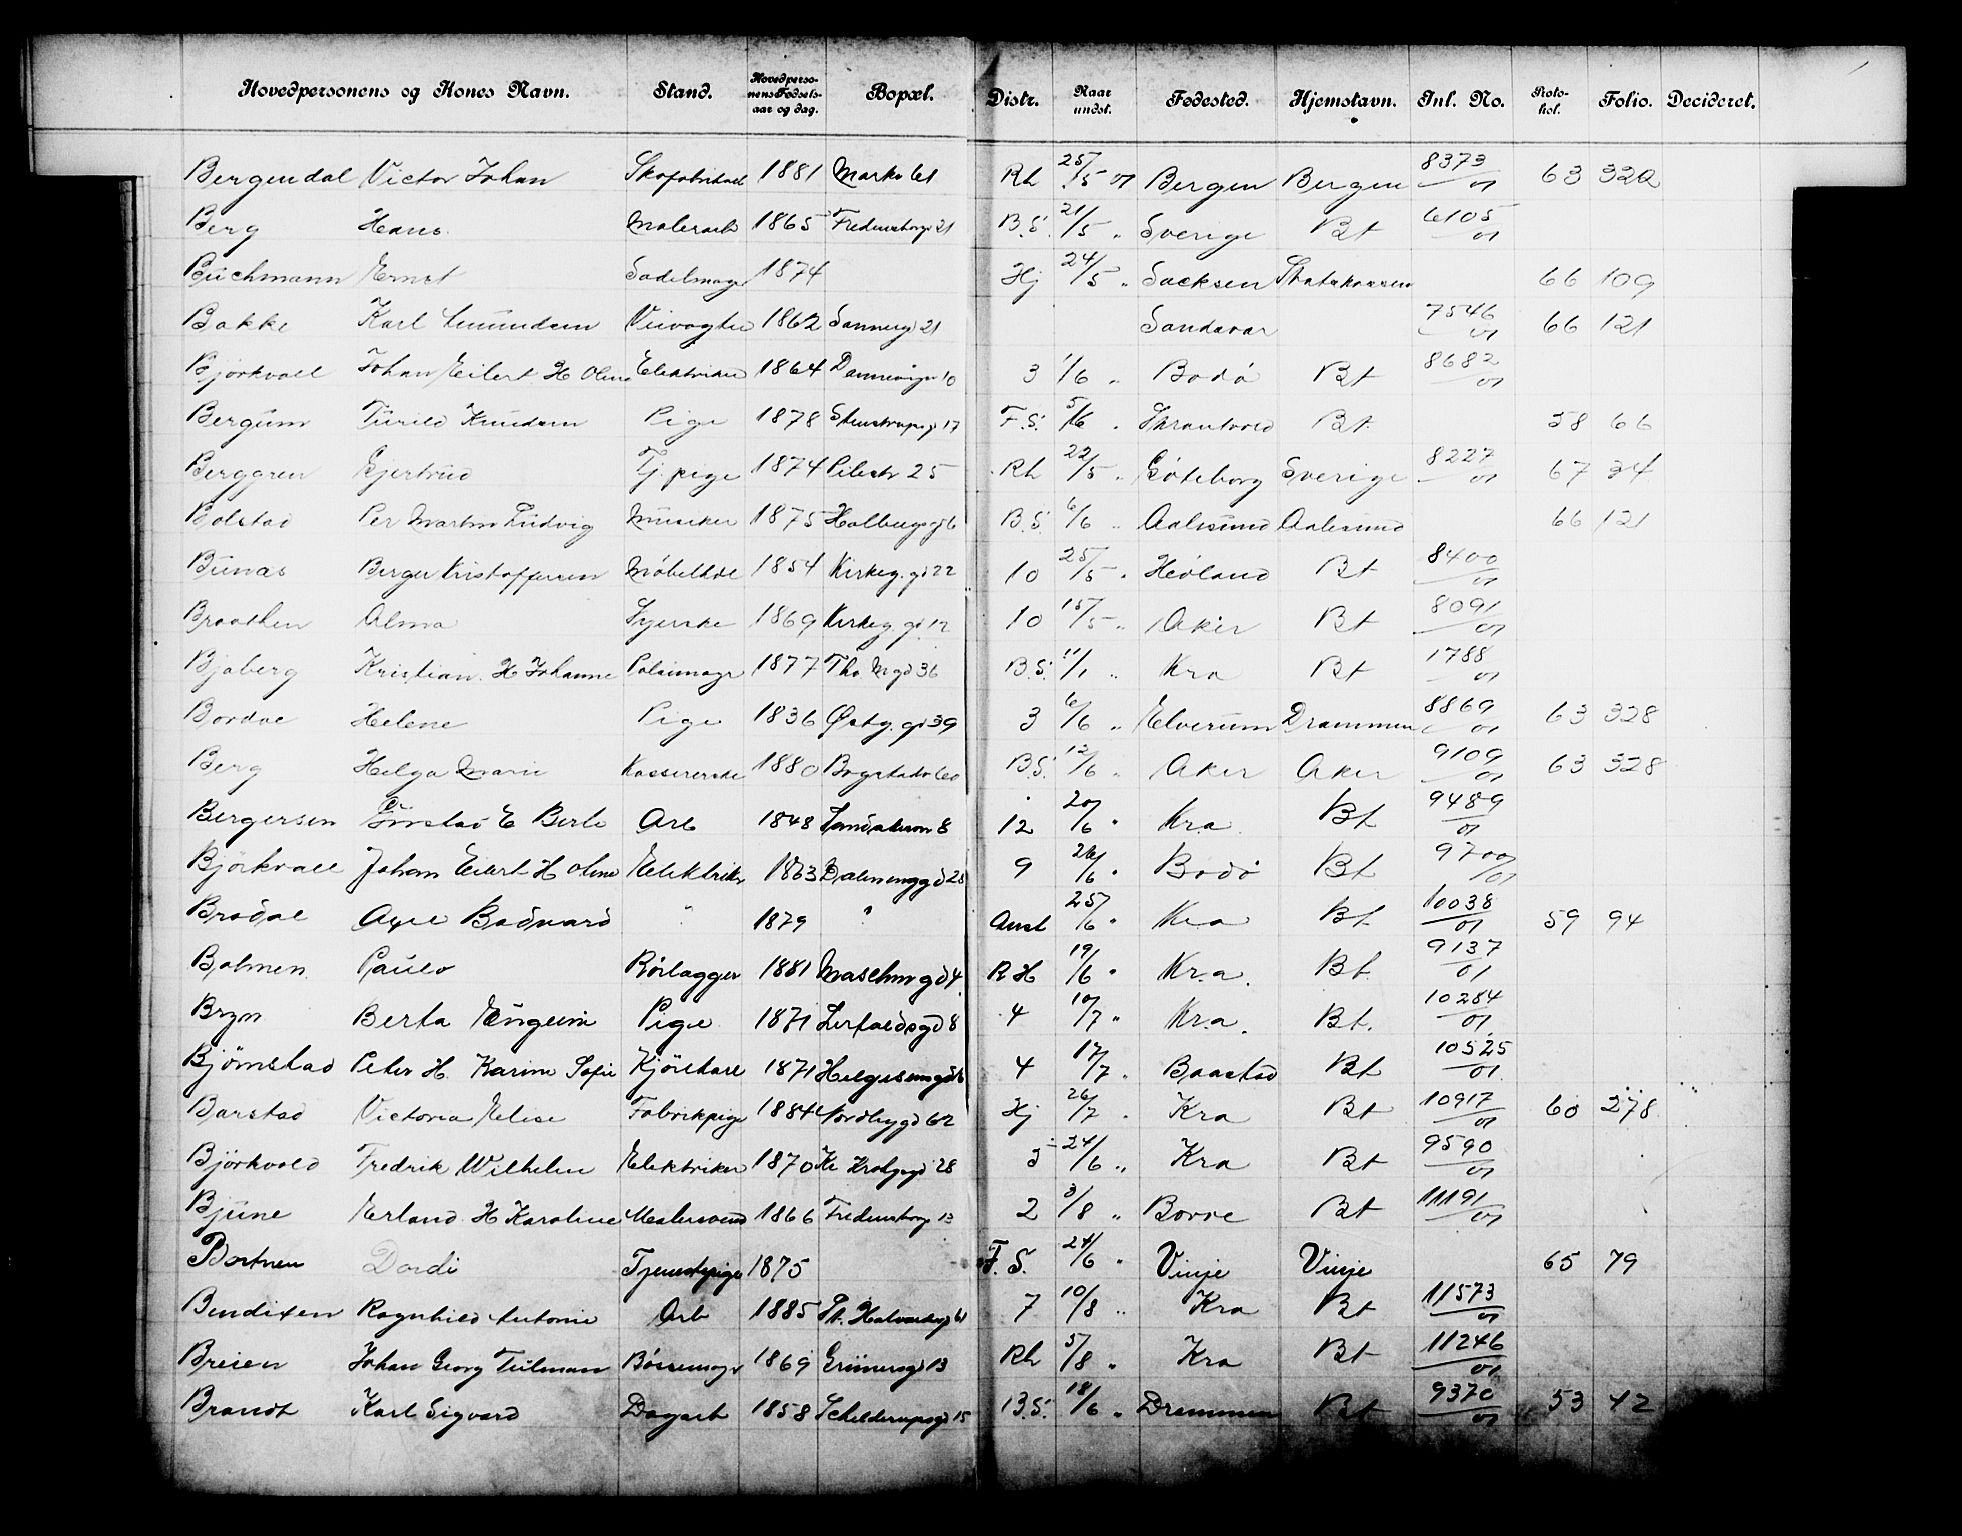 Hovedpersonens og Kones Navn. Stand. Hovedpersonens Fødselsaar og dag. Bopæl. Distr. Naar undst. Fødested. Hjemstavn. Inl. No. Protokol. Folio. Decideret.
Bergendal Victor Johan 1881 Markv 61 Rh 25/5 01 Bergen Bergen 8373/01 63 322
Berg Hans Malerarb 1865 Fredensborgv 21 B.S. 21/5 " Sverige Bt 6105/01
Buchmann Ernst Sadelmager 1874 Hj 24/5 " Sacksen 66 109
Bakke Karl 1862 Sannerg 21 Sandsvær 7546/01 66 121
Bjørkvall Johan Eilert H Oline Elektriker 1864 Dannevigv 10 3 1/6 " Bodø Bt 8682/01
Bergum Turild Knudsen Pige 1878 Stenstrupsg 17 F.S. 5/6 " Bt 58 66
Berggren Gjertrud Tj. pige 1874 Pilestr 25 Rh 22/5 " Göteborg Sverige 8227/01 67 34
Bolstad Per Martin Ludvig Musiker 1875 Holbergsgd 6 B.S. 6/6 " Aalesund Aalesund 66 121
Bunæs Berger Kristoffersen Møbelhdl 1854 Kirkeg. gd 22 10 25/5 " Høland Bt 8400/01
Braathen Alma Syerske 1869 Kirkeg. gd 12 10 15/5 " Aker Bt 8091/01
Bjaberg Kristian H Johanne 1877 Tho Mgd 36 B.S. 11/1 " Kra Bt 1788/01
Bordoe Helene Pige 1836 Østg. gd 39 3 6/6 " Elverum Drammen 8869/01 63 328
Berg Helga Marie Kassererske 1880 Bogstadv 60 B.S. 12/6 " Aker Aker 9109/01 63 328
Bergersen Gustad E Berte Arb 1848 8 12 20/6 " Kra Bt 9489/01
Björkvall Johan Eilert H Oline Elektrikr 1863 28 9 26/6 " Bodø Bt 9700/01
Brodal Axel Bodvard " 1879 " Anst 25/6 " Kra Bt 10038/01 59 94
Bolmen Paulo Rörlægger 1881 Maschingd 4 RH 19/6 " Kra. Bt 9137/01
Bryn Berta Eugenie Pige 1871 8 4 10/7 " Kra. Bt 10284/01
Bjørnstad Peter H. Karine Sofie Kjörekarl 1871 Helgesensgd 4 17/7 " Baastad Bt 10525/01
Barstad Victoria Elise Fabrikpige 1884 Nordbygd 62 Hj 26/7 " Kra Bt 10917/01 60 278
Björkvold Fredrik Wilhelm Elektriker 1870 28 3 24/6 " Kra Bt 9590/01
Bjune Erland H Karoline Malersvend 1866 Fredensborgv 13 2 3/8 " Borre Bt 11191/01
Bortnen Dordi Tjenestepige 1875 F.S. 24/6 " Vinje Vinje 65 79
Bendixen Ragnhild Antonie Arb 1885 St. Halvardsgd 61 7 10/8 " Kra Bt 11573/01
Breien Johan Georg Tulman Bössemagr 1869 Grünersgd 13 Rh 5/8 " Kra Bt 11246/01
Brandt Karl Sigvard Dagarb 1858 Schilderupsgd 15 B.S. 18/6 " Drammen Bt 9370/01 53 42